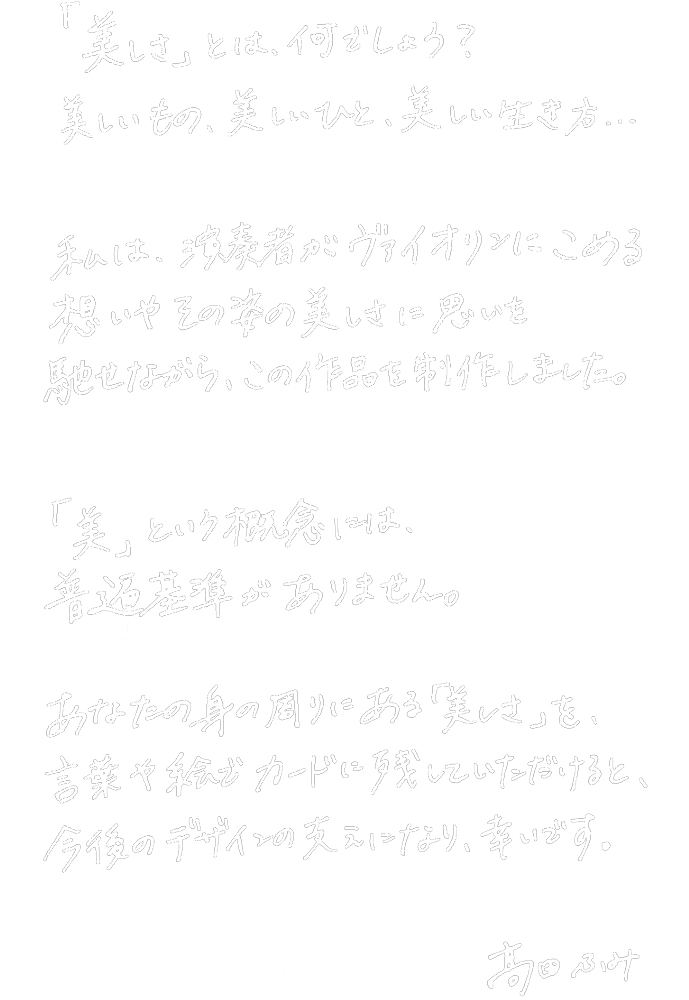 「美しさ」とは、何でしょう？
美しいもの、美しいひと、美しい生き方…
私は、演奏者がヴァイオリンにこめる
想いやその姿の美しさに思いを
馳せながら、この作品を制作しました。
「美」という概念には、
普遍基準がありません。
あなたの身の周りにある「美しさ」を、
言葉や絵でカードに残していただけると、
今後のデザインの支えになり、幸いです。
高田ふみ